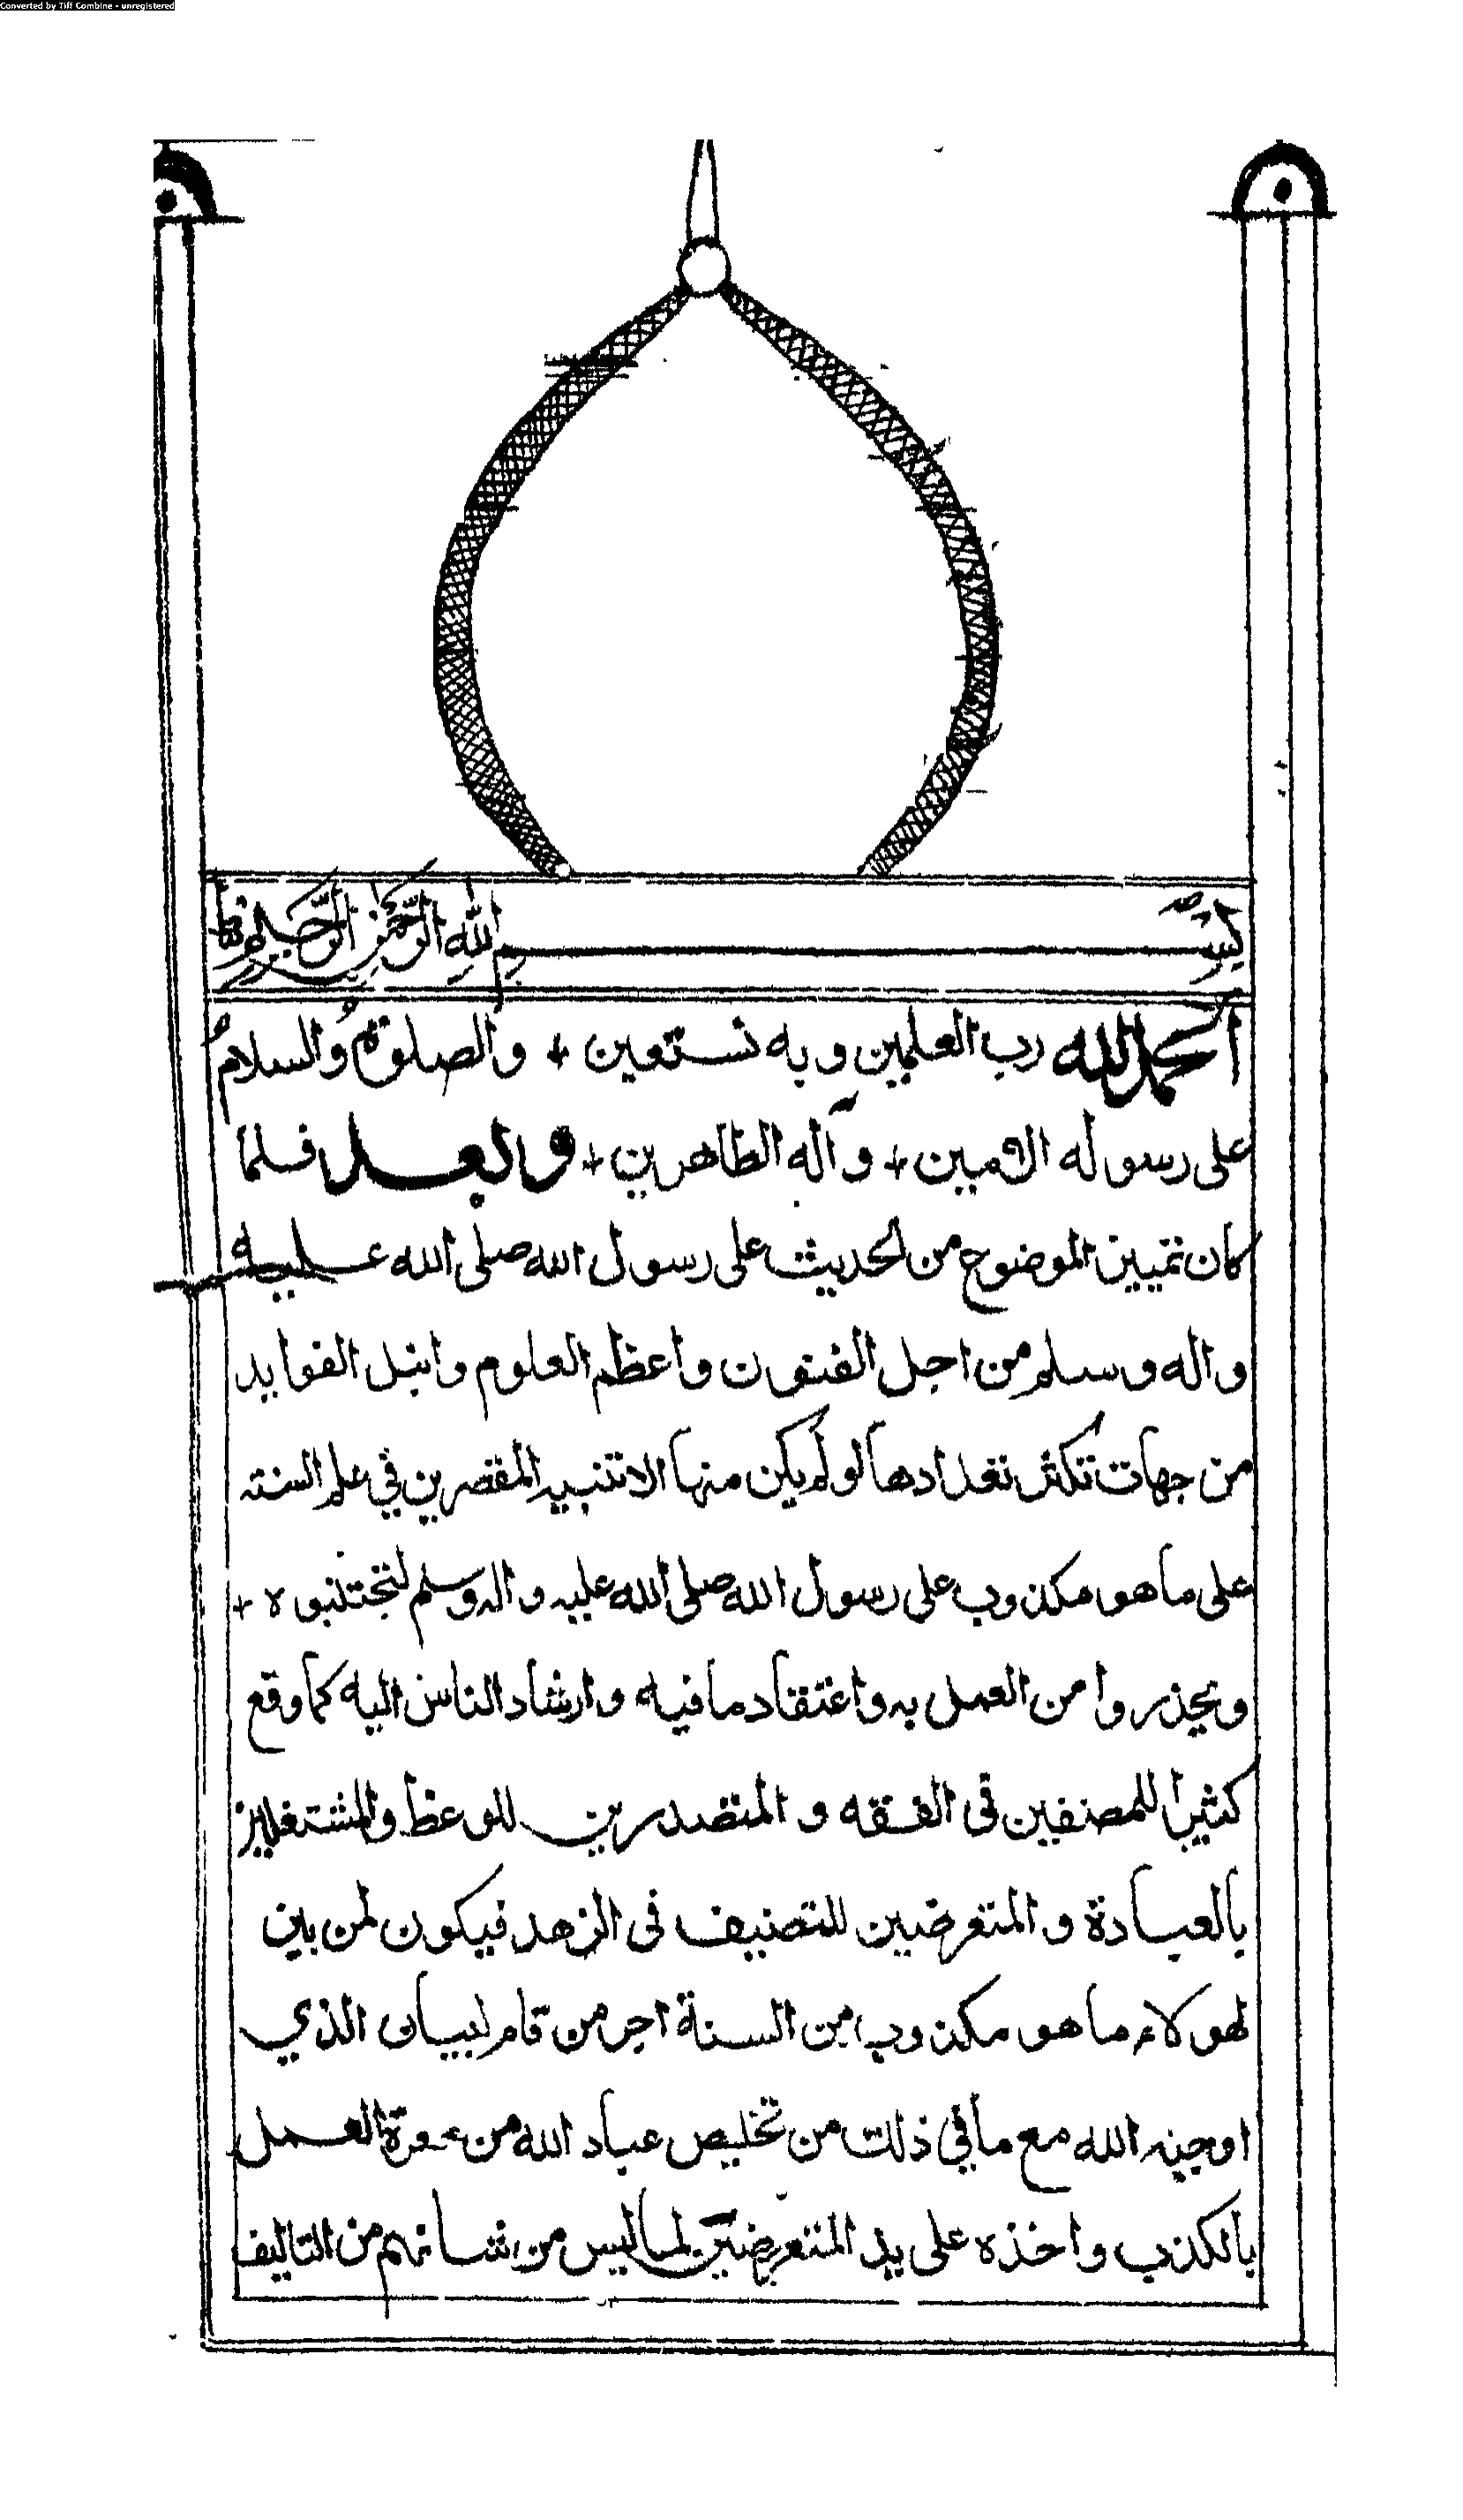 Converted by Tiff Combine - unregistered
بسم الله الرحمن الرحيم
الحمد لله رب العلمين وبه نستعين + والصلوة والسلام
على رسوله الامين + وآله الطاهرين + وبعد فلما
كان تمييز الموضوع من الحديث على رسول الله صلى الله عليه
واله وسلم من اجل الفنون واعظم العلوم وانبل الفوايد
من جهات تكثر تعدادها لو لم يكن منها الا تنبيه المقصرين في علم السنة
على ما هو مكذوب على رسول الله صلى الله عليه واله وسلم لتجتنبوه +
ويحذروا من العمل به واعتقاد ما فيه وارشاد الناس اليه كما وقع
كثيرا للمصنفين في الفقه والمتصدرين للوعظ والمشتغلين
بالعبادة والمتعرضين للتصنيف في الزهد فيكون لمن بين
لهولاء ما هو مكذوب من السنة اجر من قام لبيان الذي
اوجبه الله مع ما في ذلك من تخليص عباد الله من العمل
بالكذب واخذه على يد المتعرضين لما ليس من شانهم من التاليف